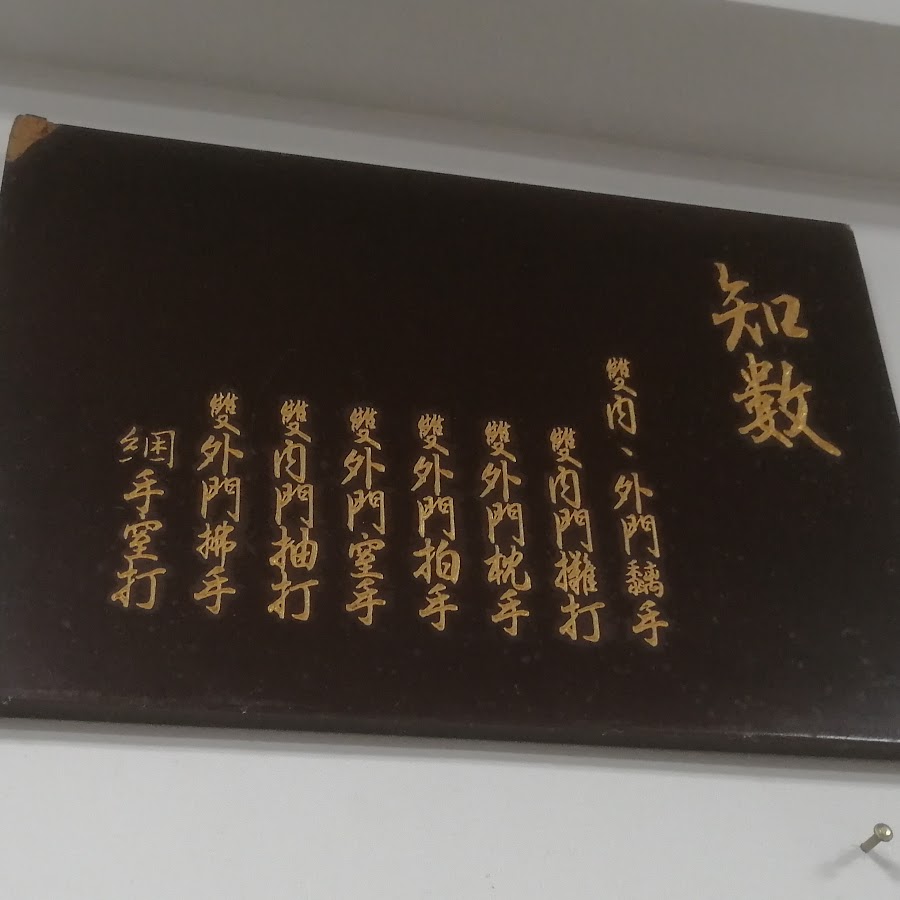 知數
雙內、外門黐手
雙內門攤打
雙外門枕手
雙外門拍手
雙外門窒手
雙內門抽打
雙外門拂手
綑手窒打